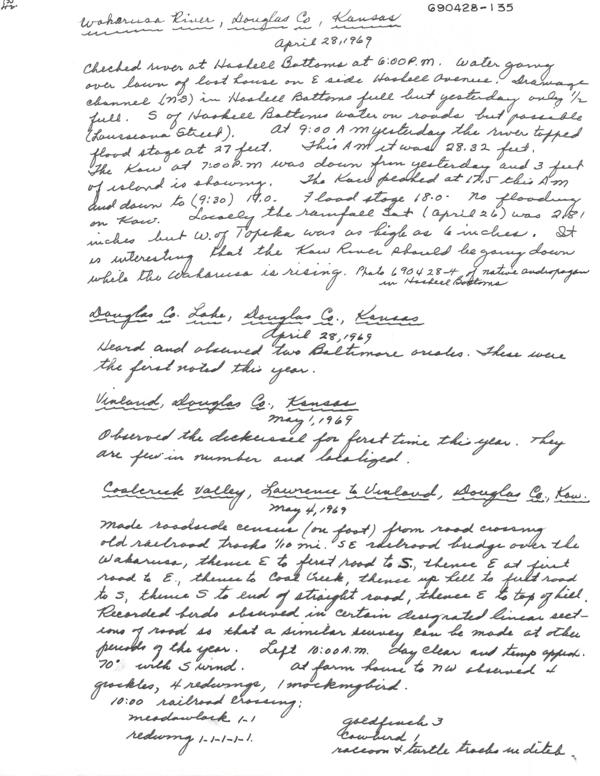 G90428-135
Wakarusa River, Douglas Co, Kansas
April 28, 1969
Checked river at Haskell Bottoms at 6:00 P.M. Water going
over lawn of last house on E side Haskell Avenue. Drainage
channel (N-S) in Haskell Bottoms full but yesterday only 1/2
full. S of Haskell Bottoms water on roads but passable
(Louisiana Street). At 9:00 AM yesterday the river topped
flood stage at 27 feet. This AM it was 28.32 feet.
The Kaw at 7:00 P.M was down from yesterday and 3 feet
of island is showing. The Kaw peaked at 17.5 this AM
and down to (9:30) 17.0. Flood stage 18.0. No flooding
on Kaw. Locally the rainfall Sat (April 26) was 2.81
inches but W. of Topeka was as high as 6 inches. It
is interesting that the Kaw River should be going down
while the Wakarusa is rising. Photo 690428-4 of native andropogon
in Haskell Bottoms
Douglas Co. Lake, Douglas Co., Kansas
April 28, 1969
Heard and observed two Baltimore orioles. These were
the first noted this year.
Vinland, Douglas Co., Kansas
May 1, 1969
Observed the dickcissel for first time this year. They
are few in number and localized.
Coalcreek Valley, Lawrence to Vinland, Douglas Co., Kan.
May 4, 1969
Made roadside census (on foot) from road crossing
old railroad tracks 1/10 mi. SE railroad bridge over the
Wakarusa, thence E to first road to S., thence E at first
road to E., thence to Coal Creek, thence up hill to first road
to S, thence S to end of straight road, thence E to top of hill.
Recorded birds observed in certain designated linear sect-
ions of road so that a similar survey can be made at other
periods of the year. Left 10:00 A.M. Day clear and temp approx.
70° with S wind. At farm house to NW observed 4
grackles, 4 redwings, 1 mockingbird.
10:00 railroad crossing:
meadowlark 1-1
goldfinch 3
redwing 1-1-1-1-1.
cowbird 1
raccoon & turtle tracks in ditch.